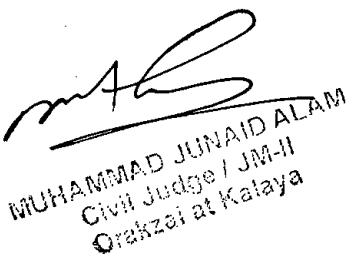 MUHAMMAD JUNAID ALAM
Civil Judge / JM-II
Orakzai at Kalaya